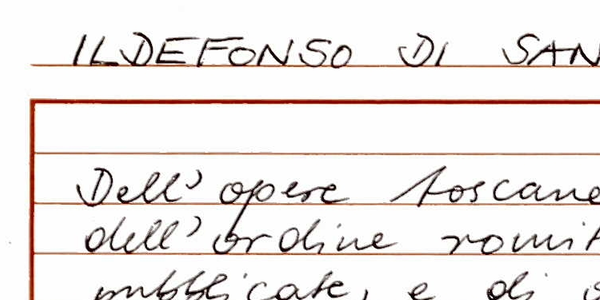 ILDEFONSO DI SAN
Dell' opere toscane
dell' ordine romit
pubblicate, e di